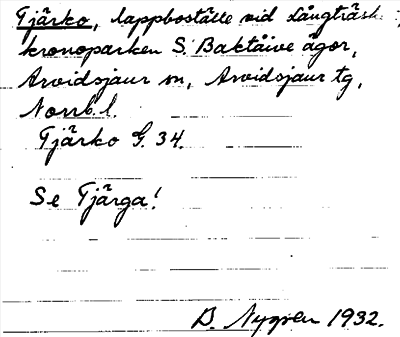 Tjärko, lappboställe vid Långträsk,
kronoparken S. Baktåive ägor,
Arvidsjaur sn, Arvidsjaur tg,
Norrb. l.
Tjärko G. 34.
Se Tjärga!
D. Nygren 1932.